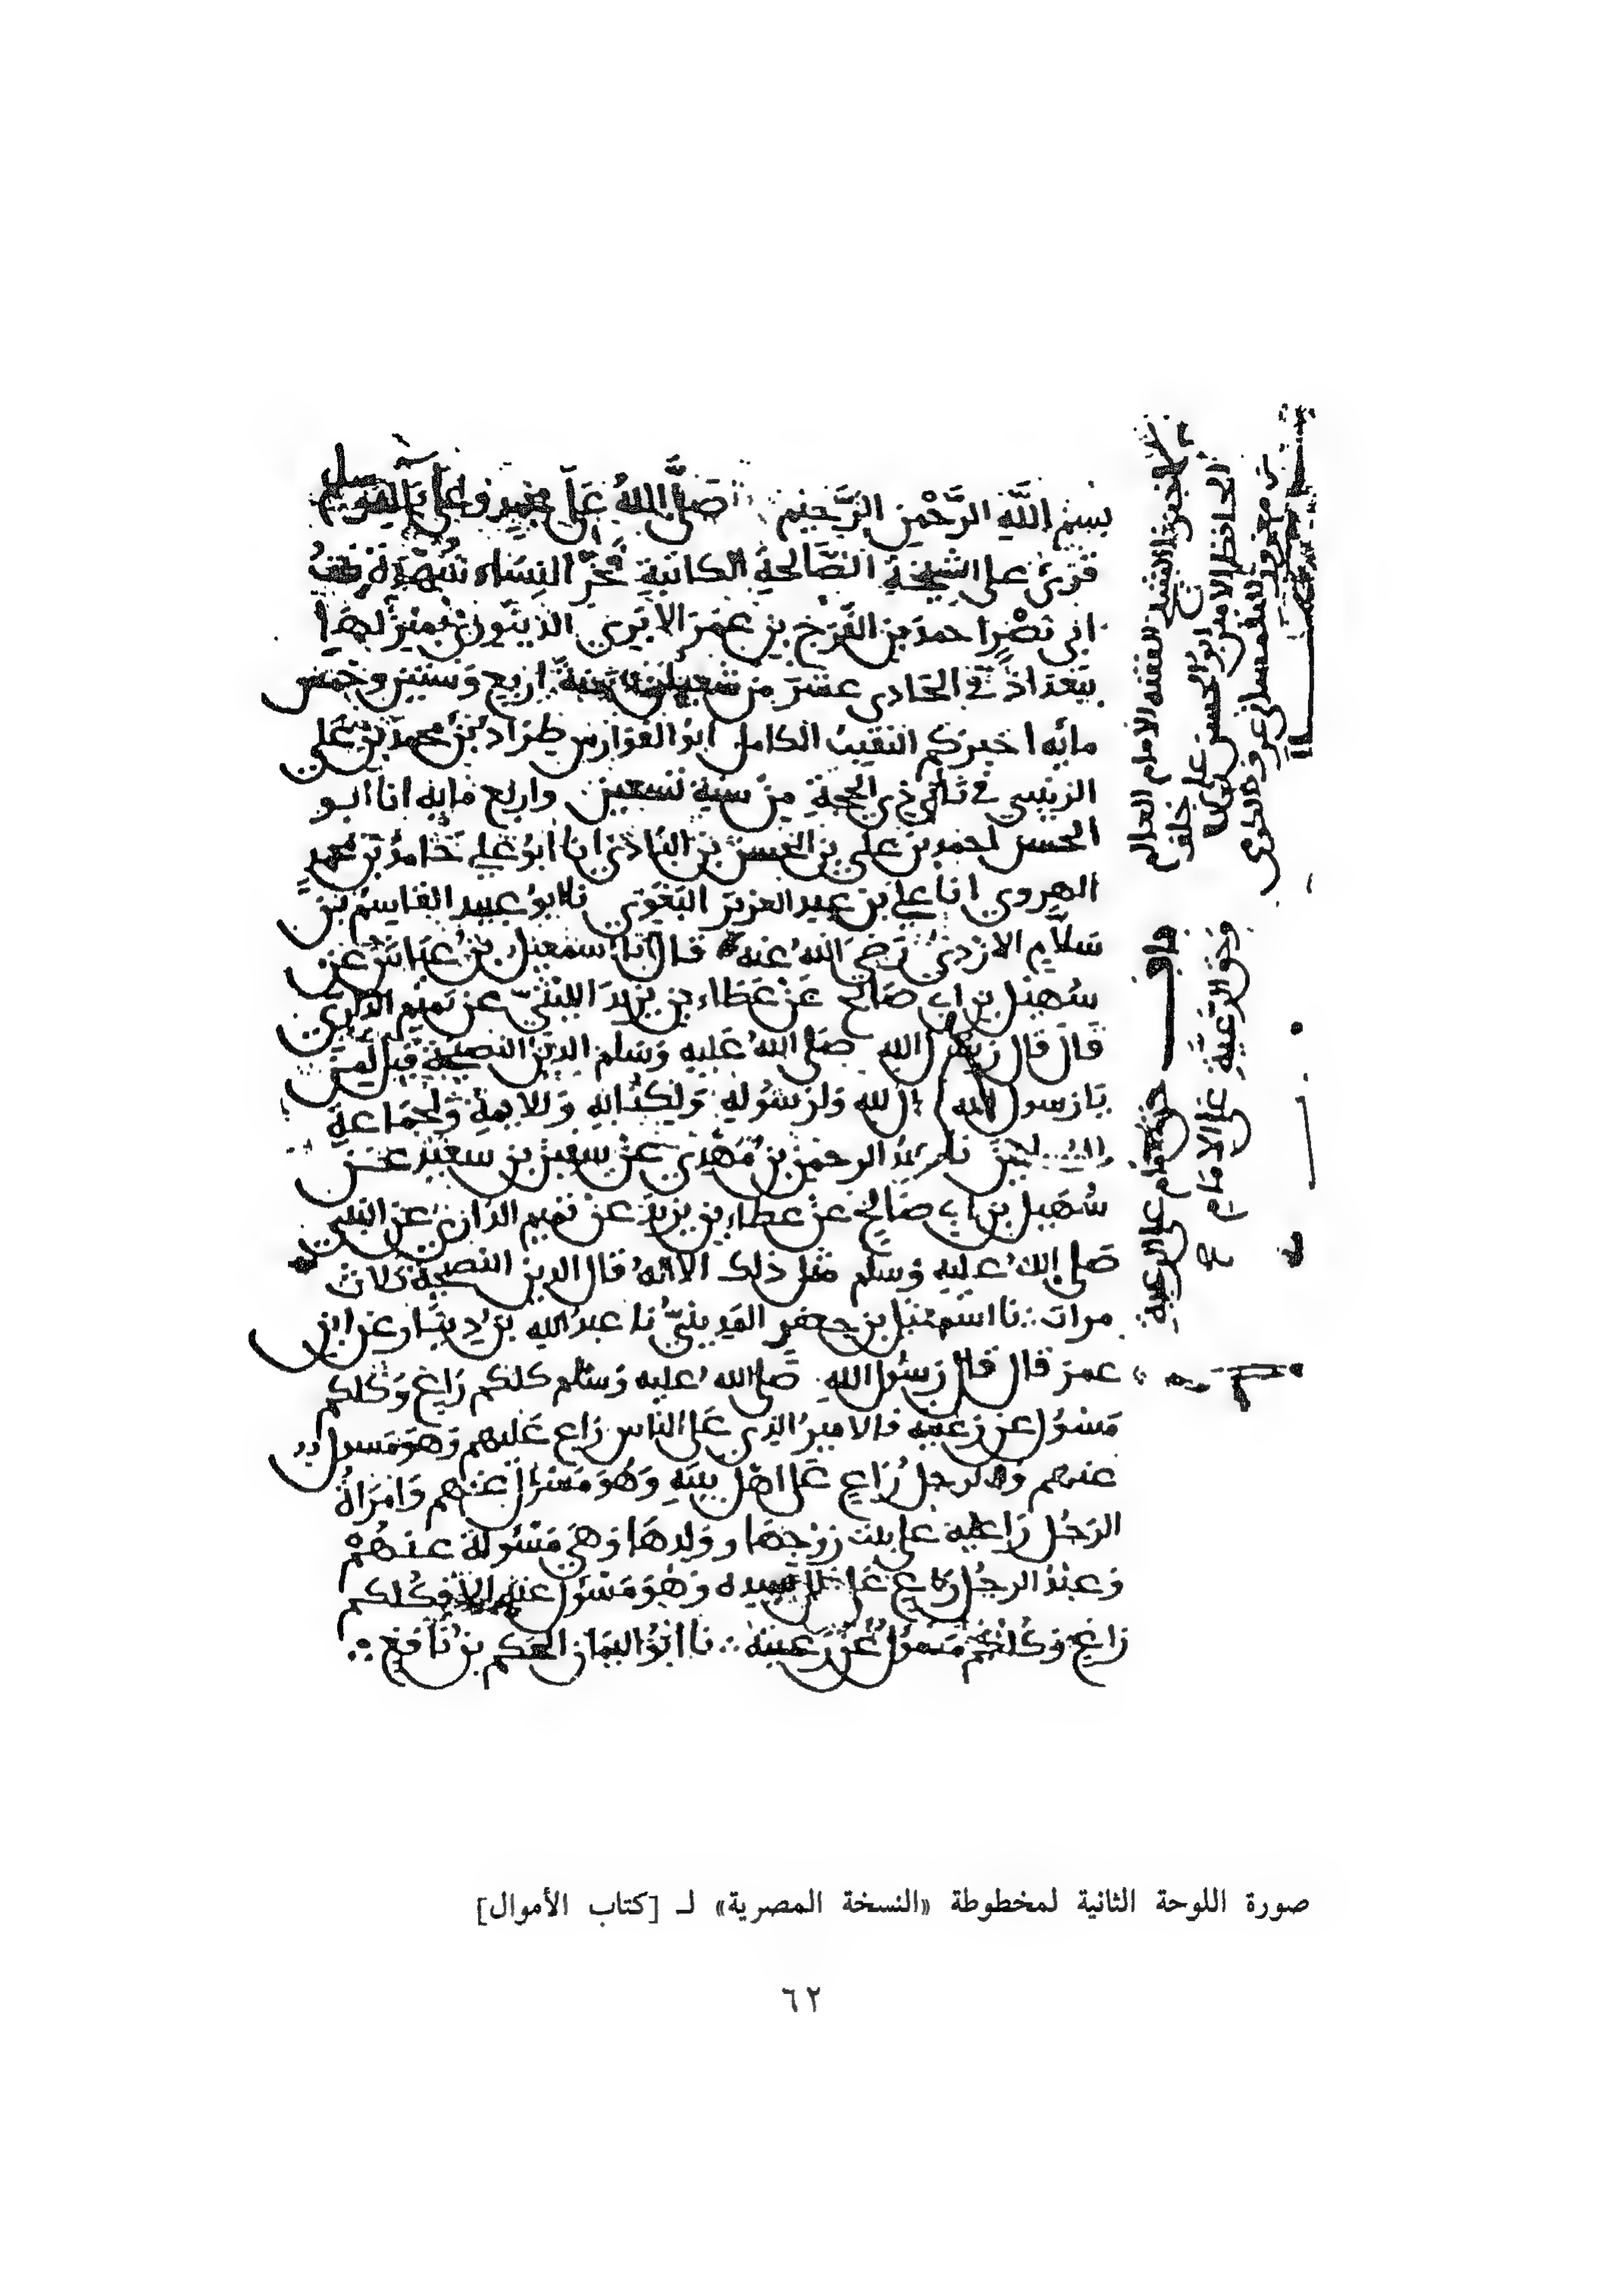 بسم الله الرَّحْمن الرَّحيم صَلى اللهُ عَلَى محمدٍ وعلى آله وسلم
قرئ على الشيخة الصَّالحة الكاتبة فخر النِسَاء شُهْدَة بنتُ
ابي نصْرٍ احمد بن الفَرَج بن عمَرَ الابَري الدينَوري بمنزلهَا
ببغداذ في الحَادي عشرَ من شعبان سنة اربع وستين وخمس
مائه اخبركم النقيبُ الكامل ابو الفوارس طِرَاد بنُ محمد بن عَلي
الزينبي في ثاني ذي الحجة من سنة تسعين واربع مايه انا ابو
الحسن احمد بن علي بن الحسن بن البَاذي انا ابو علي حَامدُ بن محمدٍ
الهروي انا علي بن عبد العزيز البَغوي نا ابو عبيد القاسِمُ بن
سَلّامٍ الازدي رَضي الله عنه قال نا اسمعيل بن عيّاش عن
سُهيل بن ابي صالح عن عَطاء بن يزيدَ الليثيّ عن تميم الداري
قال قال رسول الله صَلى الله عَليه وَسَلم الدين النصيحة قيل لمن
يَا رسول الله قال لله ولرسُوله وَلكتابه وللايمة ولجمَاعة
المسلمين نا عبدُ الرحمن بن مَهدي عن سفين بن سعيد عن
سُهَيل بن ابي صَالح عن عطاء بن يزيدَ عن تميم الدّاري عن النبي
صَلى الله عليه وَسَلم مثل ذلك الا انّه قال الدين النصيحة ثلاث
مرات نا اسمعيل بن جعفر المديني نا عبدُ الله بن دينار عن ابن
عمرَ قال قال رَسُول الله صَلى الله عليه وسَلم كلكم رَاعٍ وَكلكم
مَسْئولٌ عن رَعيته فالامير الذي عَلى الناس رَاع عَليهم وَهوَ مَسول
عنهم والرجل رَاعٍ عَلى اهْل بيته وَهُوَ مَسئولٌ عنهم وَامرَاةُ
الرّجُل رَاعية على بيت زوجهَا وولدهَا وَهي مَسئولة عنهُمْ
وَعبْدُ الرجُل رَاعٍ عَلى مال سيده وَهُوَ مَسْئولٌ عنه الا فكلكم
رَاعٍ وكلكم مَسئولٌ عن رَعيته نا ابُو اليمَان الحكم بن نَافع
حق الامام على الرعية
وحق الرّعيّةِ على الامام
صورة اللوحة الثانية لمخطوطة «النسخة المصرية» لـ [كتاب الأموال]
٦٢